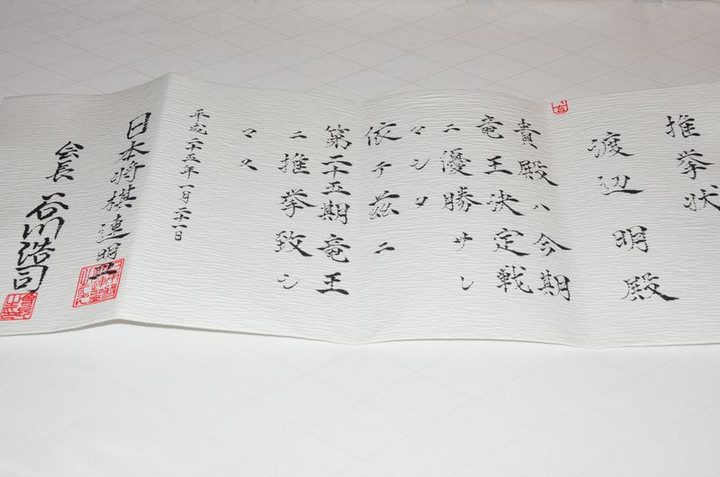 推挙状
渡辺 明殿
貴殿ハ今期
竜王決定戦
ニ優勝サレ
マシタ
依テ茲ニ
第二十五期竜王
ニ推挙致シ
マス
平成二十五年一月二十一日
日本将棋連盟
会長 谷川浩司